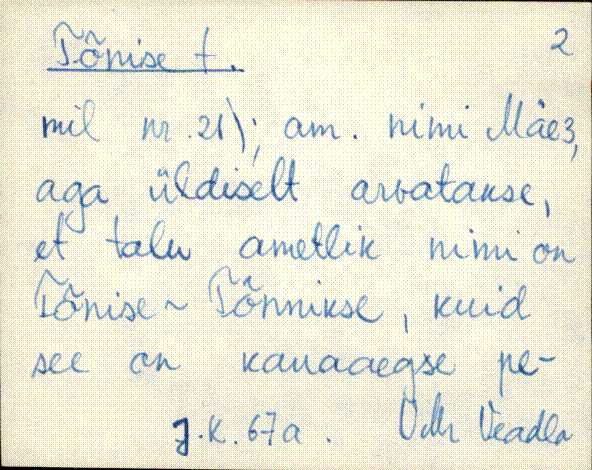 Tõnise t. 2
mil nr. 21); am. nimi Mäe 3,
aga üldiselt arvatakse,
et talu ametlik nimi on
Tõnise ~ Tõnnikse, kuid
see on kauaaegse pe-
J.K. 67a. Veadla